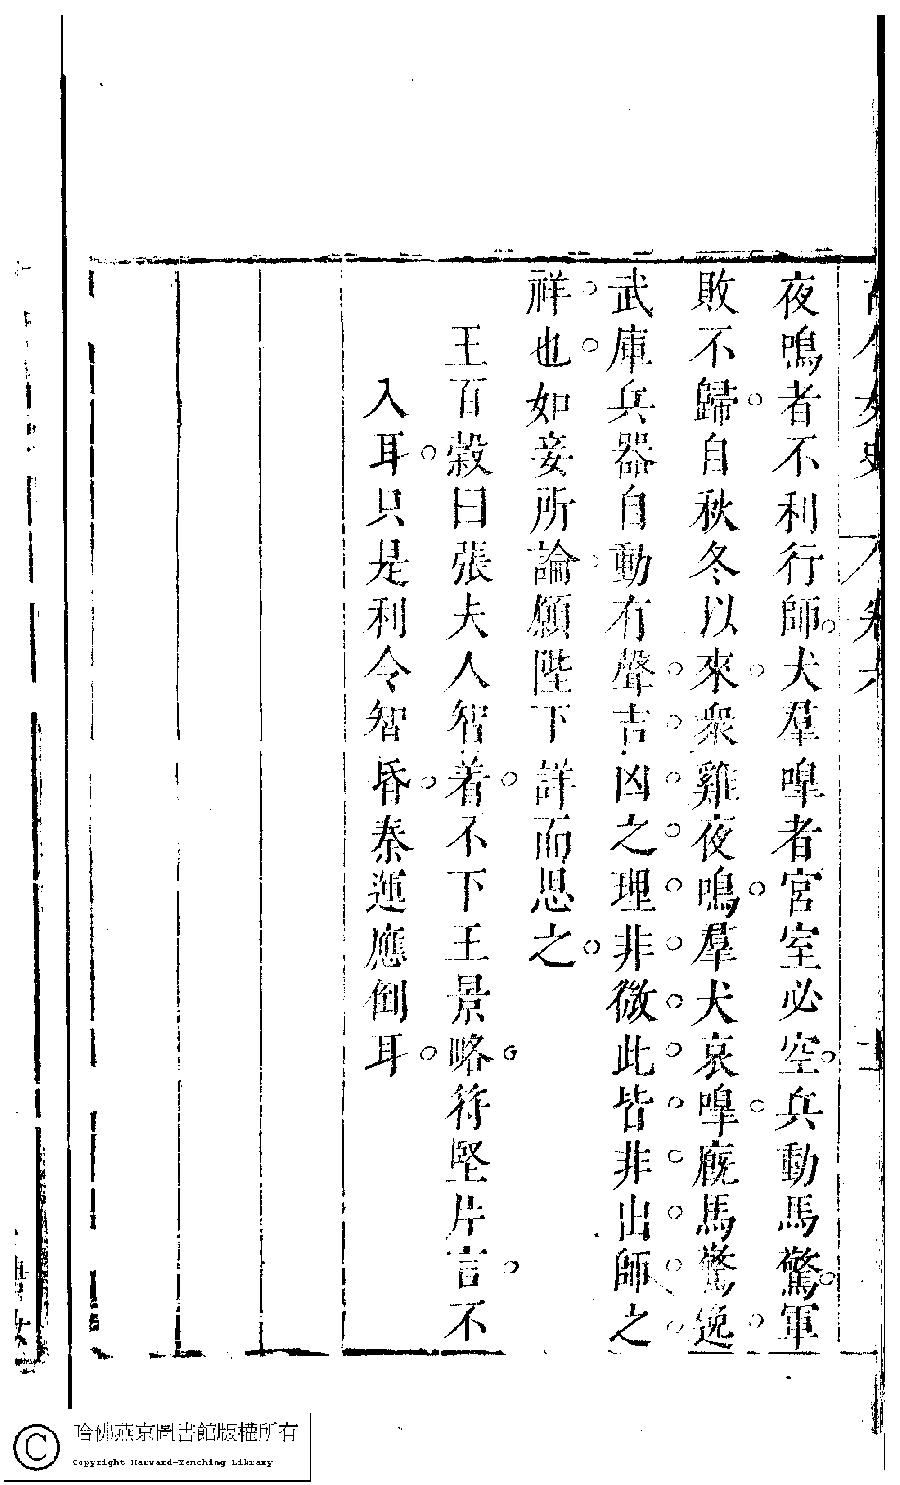 夜鳴者不利行師犬羣嘷者宮室必空兵動馬驚軍
敗不歸自秋冬以來衆雞夜鳴羣犬哀嘷廐馬驚逸
武庫兵器自動有聲吉凶之理非微此皆非出師之
祥也如妾所論願陛下詳而思之
王百穀曰張夫人智着不下王景略符堅片言不
入耳只是利令智昏秦運應倒耳
哈佛燕京圖書館版權所有
Copyright Harvard-Yenching Library